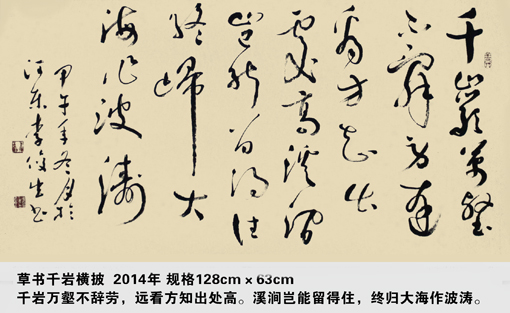 千巖萬壑
不辭勞遠
看方知出
處高溪澗
豈能留得住
終歸大
海作波濤
甲午年冬月於
河東李俊生书
草书千岩横披 2014年 规格128cm×63cm
千岩万壑不辞劳，远看方知出处高。溪涧岂能留得住，终归大海作波涛。